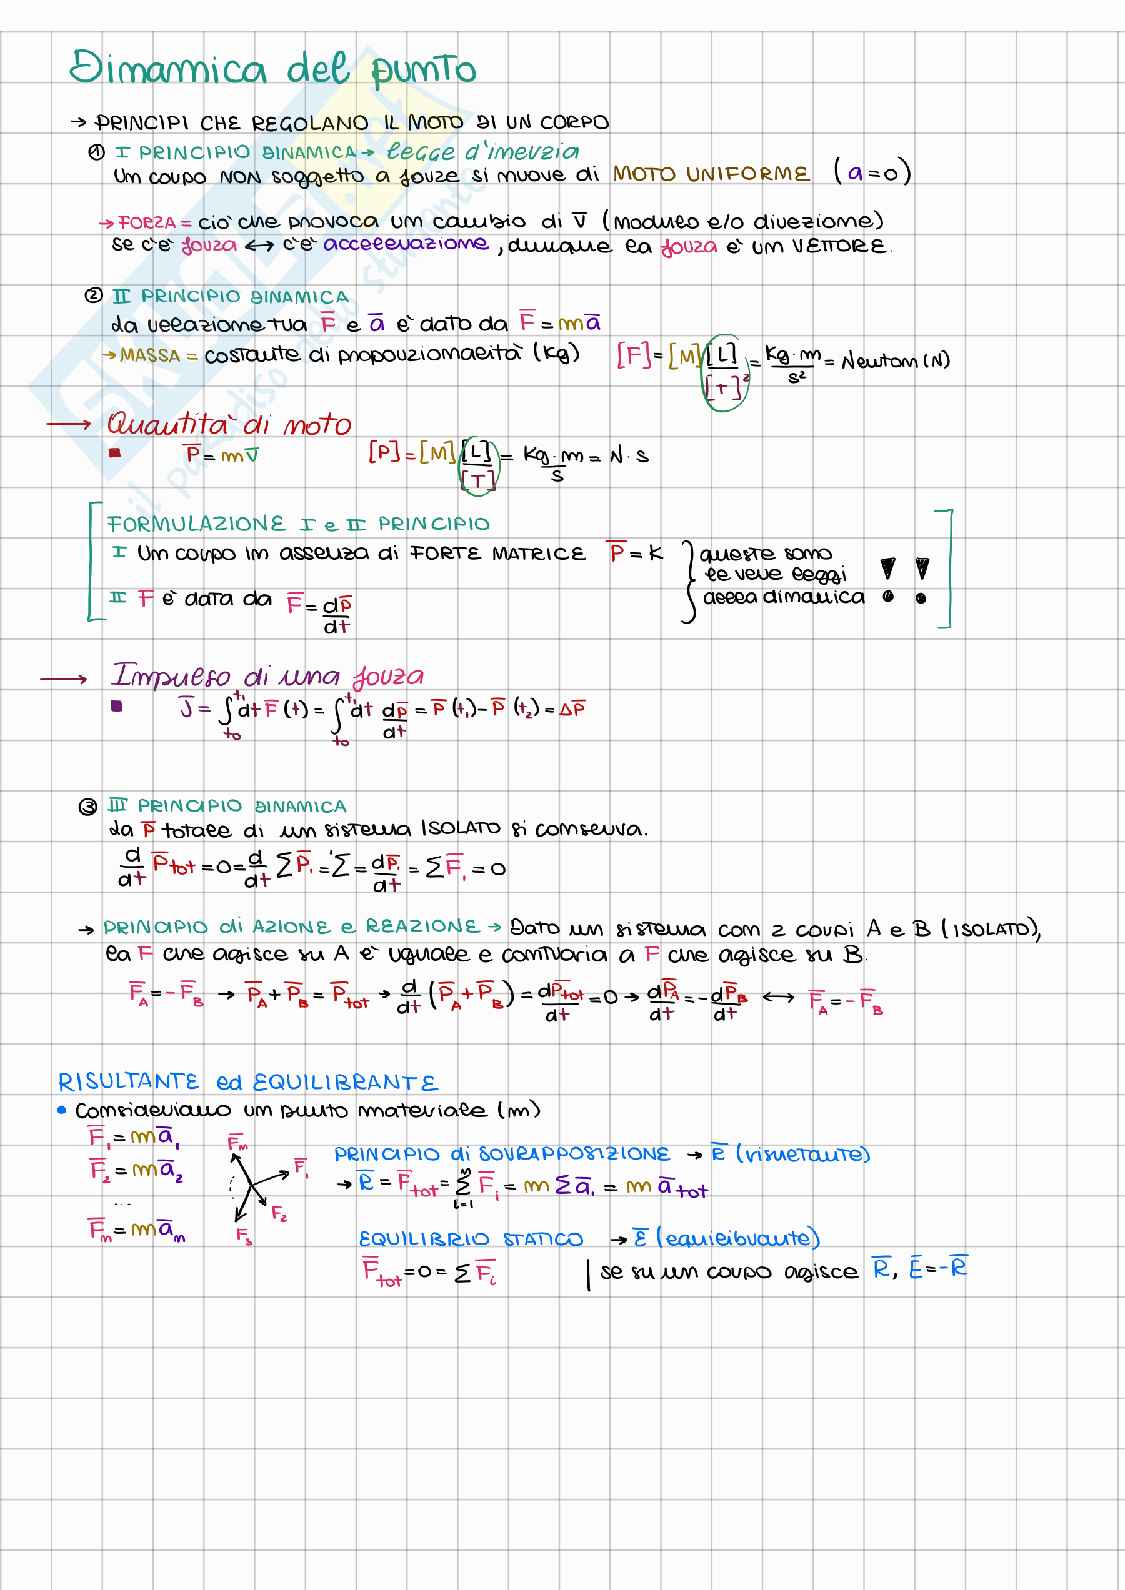 Dinamica del punto
→ PRINCIPI CHE REGOLANO IL MOTO DI UN CORPO
① I PRINCIPIO DINAMICA → legge d'inerzia
Un corpo NON soggetto a forze si muove di MOTO UNIFORME (a=0)
→ FORZA = ciò che provoca un cambio di v̅ (modulo e/o direzione)
Se c'è forza ↔ c'è accelerazione, dunque la forza è un VETTORE.
② II PRINCIPIO DINAMICA
La relazione tra F̅ e a̅ è dato da F̅ = ma̅
→ MASSA = costante di proporzionalità (Kg) [F] = [M] [L]/[T]² = Kg·m/s² = Newton (N)
→ Quantità di moto
▪ P̅ = mv̅ [P] = [M] [L]/[T] = Kg·m/s = N·s
FORMULAZIONE I e II PRINCIPIO
I Un corpo in assenza di FORTE MATRICE P̅ = K } queste sono le vere leggi della dinamica !!
II F̅ è data da F̅ = dp̅/dt
→ Impulso di una forza
▪ J̅ = ∫t₀^t₁ dt F̅(t) = ∫t₀^t₁ dt dp̅/dt = P̅(t₁) - P̅(t₂) = ΔP̅
③ III PRINCIPIO DINAMICA
La P̅ totale di un sistema ISOLATO si conserva.
d/dt P̅tot = 0 = d/dt ΣP̅i = Σ = dP̅i/dt = ΣF̅i = 0
→ PRINCIPIO di AZIONE e REAZIONE → Dato un sistema con 2 corpi A e B (ISOLATO),
la F che agisce su A è uguale e contraria a F che agisce su B.
F̅A = -F̅B → P̅A + P̅B = P̅tot → d/dt (P̅A + P̅B) = dP̅tot/dt = 0 → dP̅A/dt = -dP̅B/dt ↔ F̅A = -F̅B
RISULTANTE ed EQUILIBRANTE
• Consideriamo un punto materiale (m)
F̅₁ = ma̅₁
F̅₂ = ma̅₂
...
F̅n = ma̅n
F̅n
F̅₁
F₂
F₃
PRINCIPIO di SOVRAPPOSIZIONE → R̅ (risultante)
→ R̅ = F̅tot = Σi=1^n F̅i = m Σa̅i = m a̅tot
EQUILIBRIO STATICO → E̅ (equilibrante)
F̅tot = 0 = ΣF̅i | se su un corpo agisce R̅, E̅ = -R̅